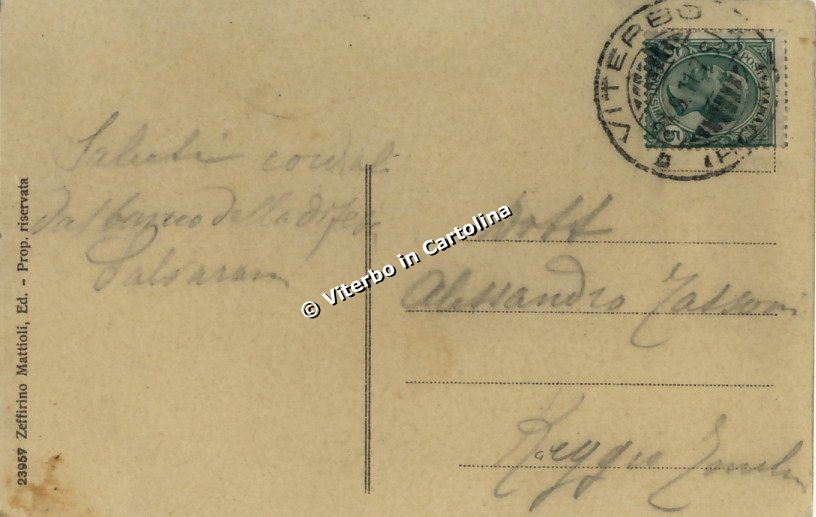 VITERBO
POSTE ITALIANE
5
Saluti cordiali
dal banco della difesa
© Viterbo in Cartolina
Dott
Alessandro Tassoni
Reggio Emilia
23957 Zeffirino Mattioli, Ed. - Prop. riservata